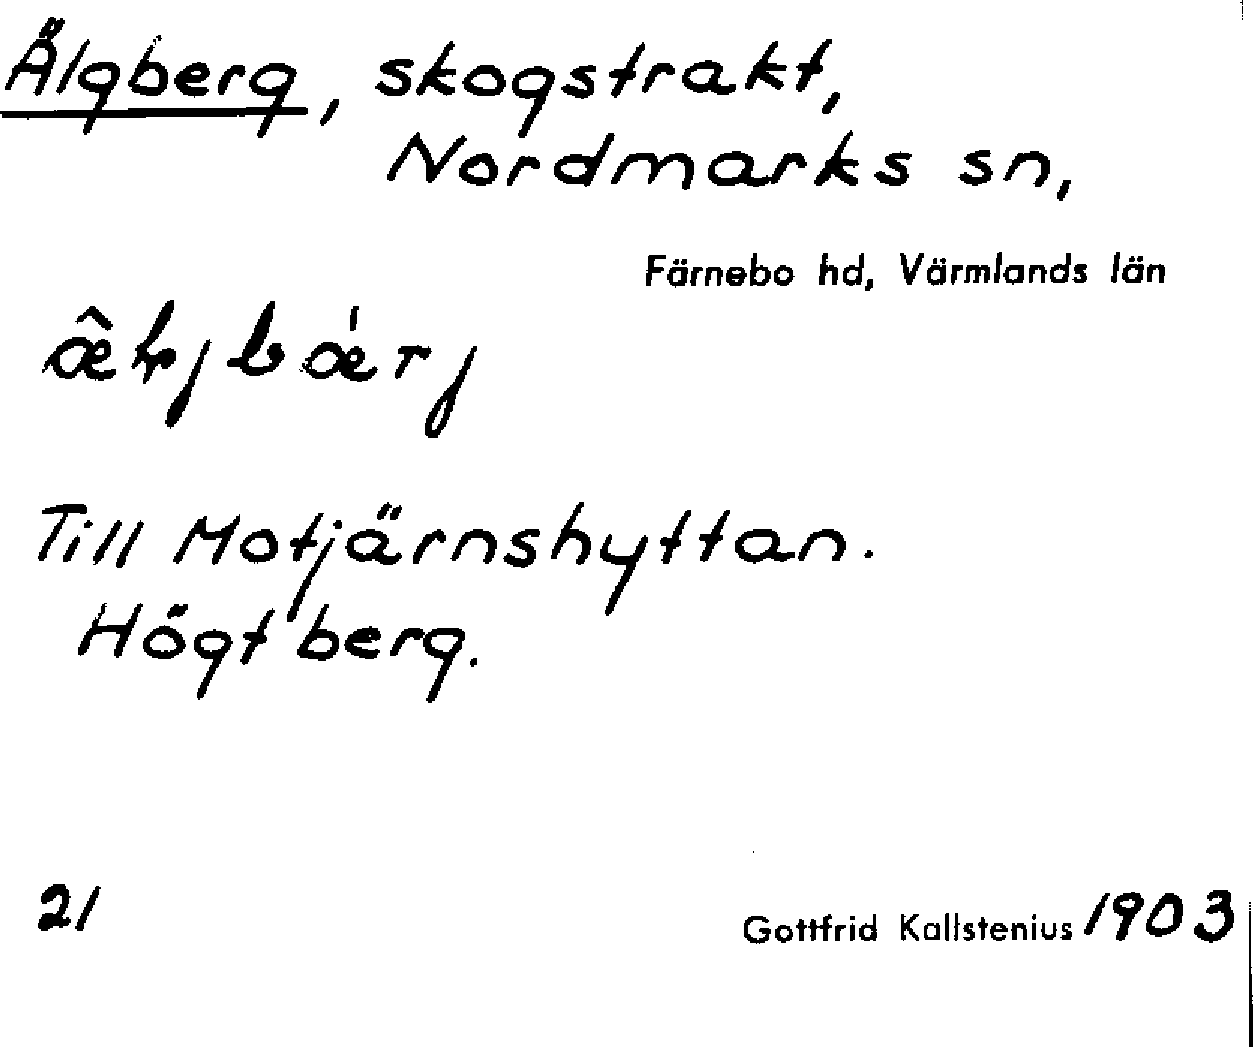 Älgberg, skogstrakt,
Nordmarks sn,
Färnebo hd, Värmlands län
Till Motjärnshyttan.
Högt berg.
21
Gottfrid Kallstenius 1903